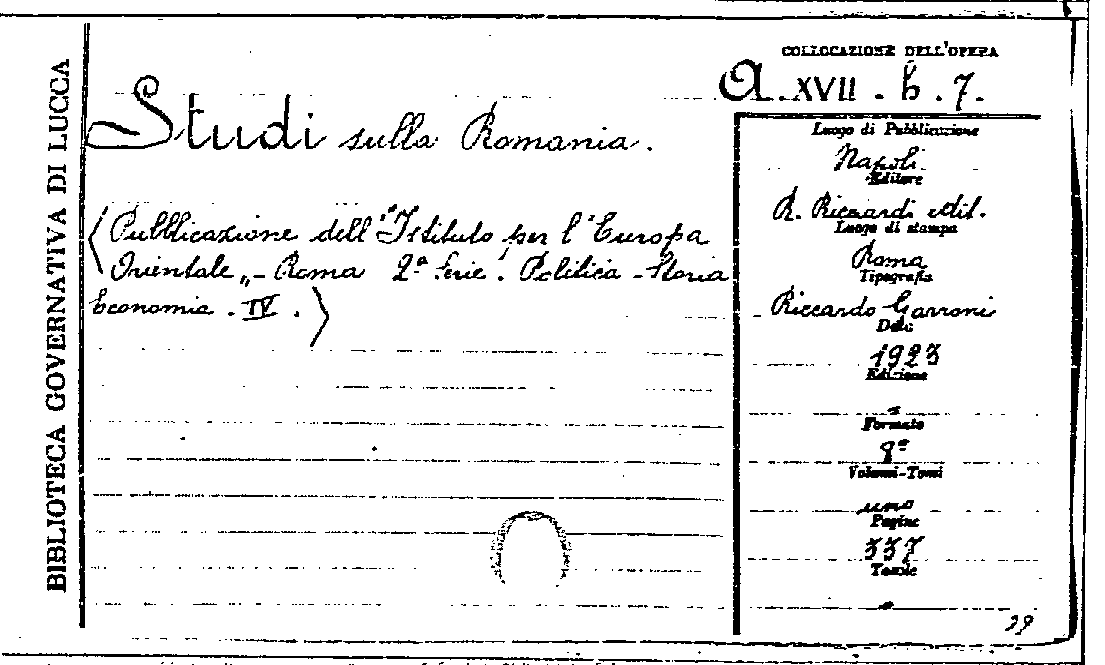 BIBLIOTECA GOVERNATIVA DI LUCCA
Studi sulla Romania.
(Pubblicazione dell'"Istituto per l'Europa
Orientale„ - Roma 2ª serie: Politica - Storia
Economia. IV.)
COLLOCAZIONE DELL'OPERA
A. XVII. b. 7.
Luogo di Pubblicazione
Napoli
Editore
R. Ricciardi edit.
Luogo di stampa
Roma
Tipografia
Riccardo Garroni
Data
1923
Edizione
"
Formato
8°
Volumi-Tomi
uno
Pagine
337
Tavole
"
29